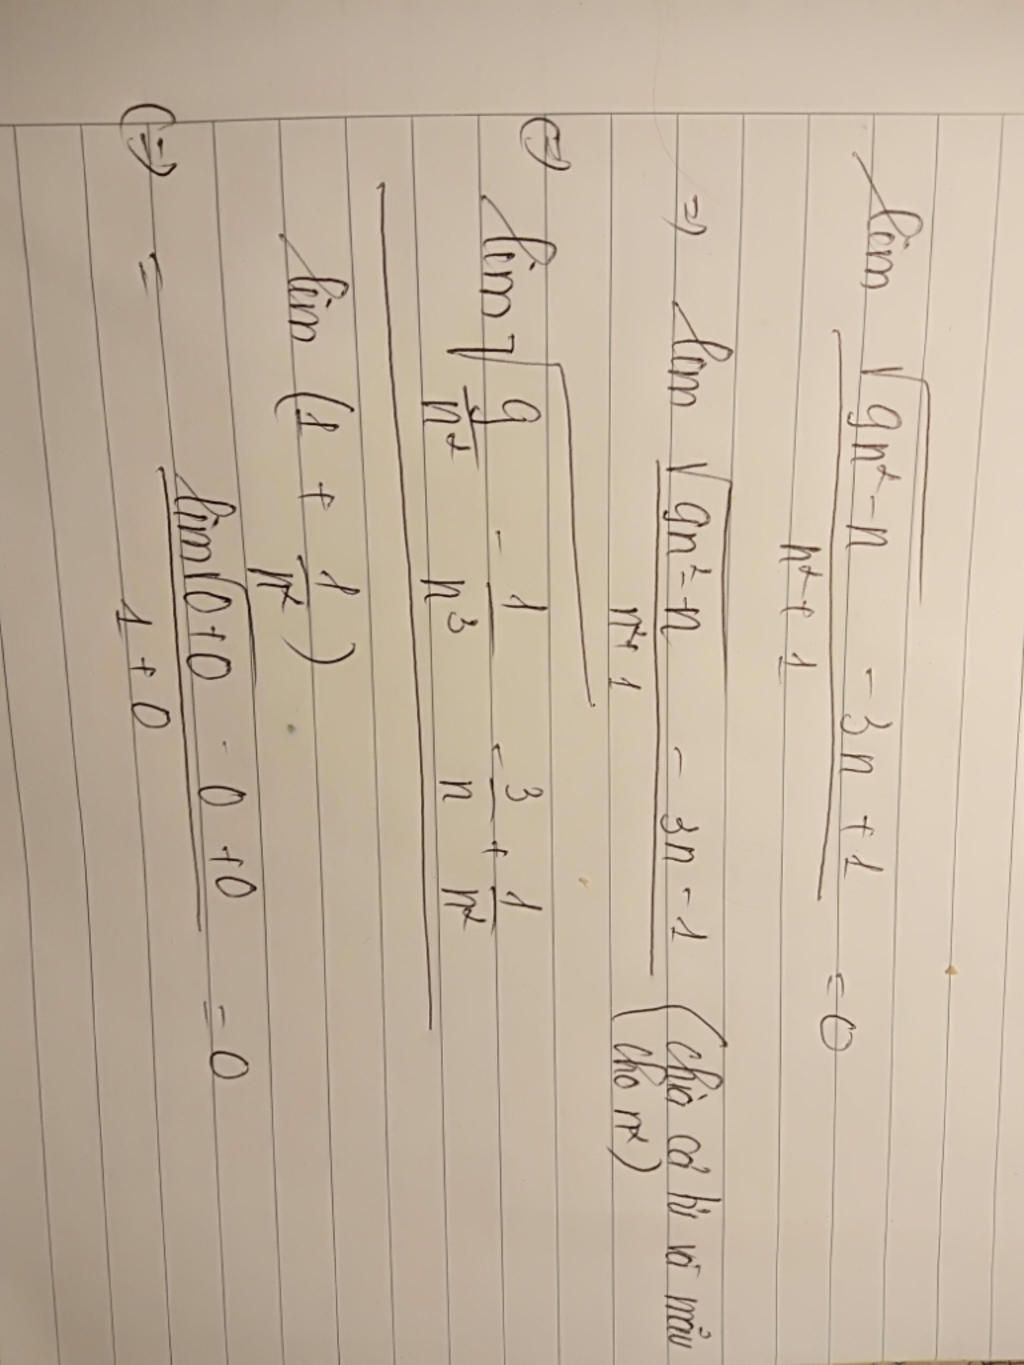 lim √9n² - n - 3n + 1 = 0
n² + 1
=> lim √9n² - n - 3n - 1 (chia cả tử và mẫu
n² + 1 cho n²)
(=) lim √9/n² - 1/n³ - 3/n + 1/n²
lim (1 + 1/n²)
(=) = lim √0+0 - 0 + 0 = 0
1 + 0